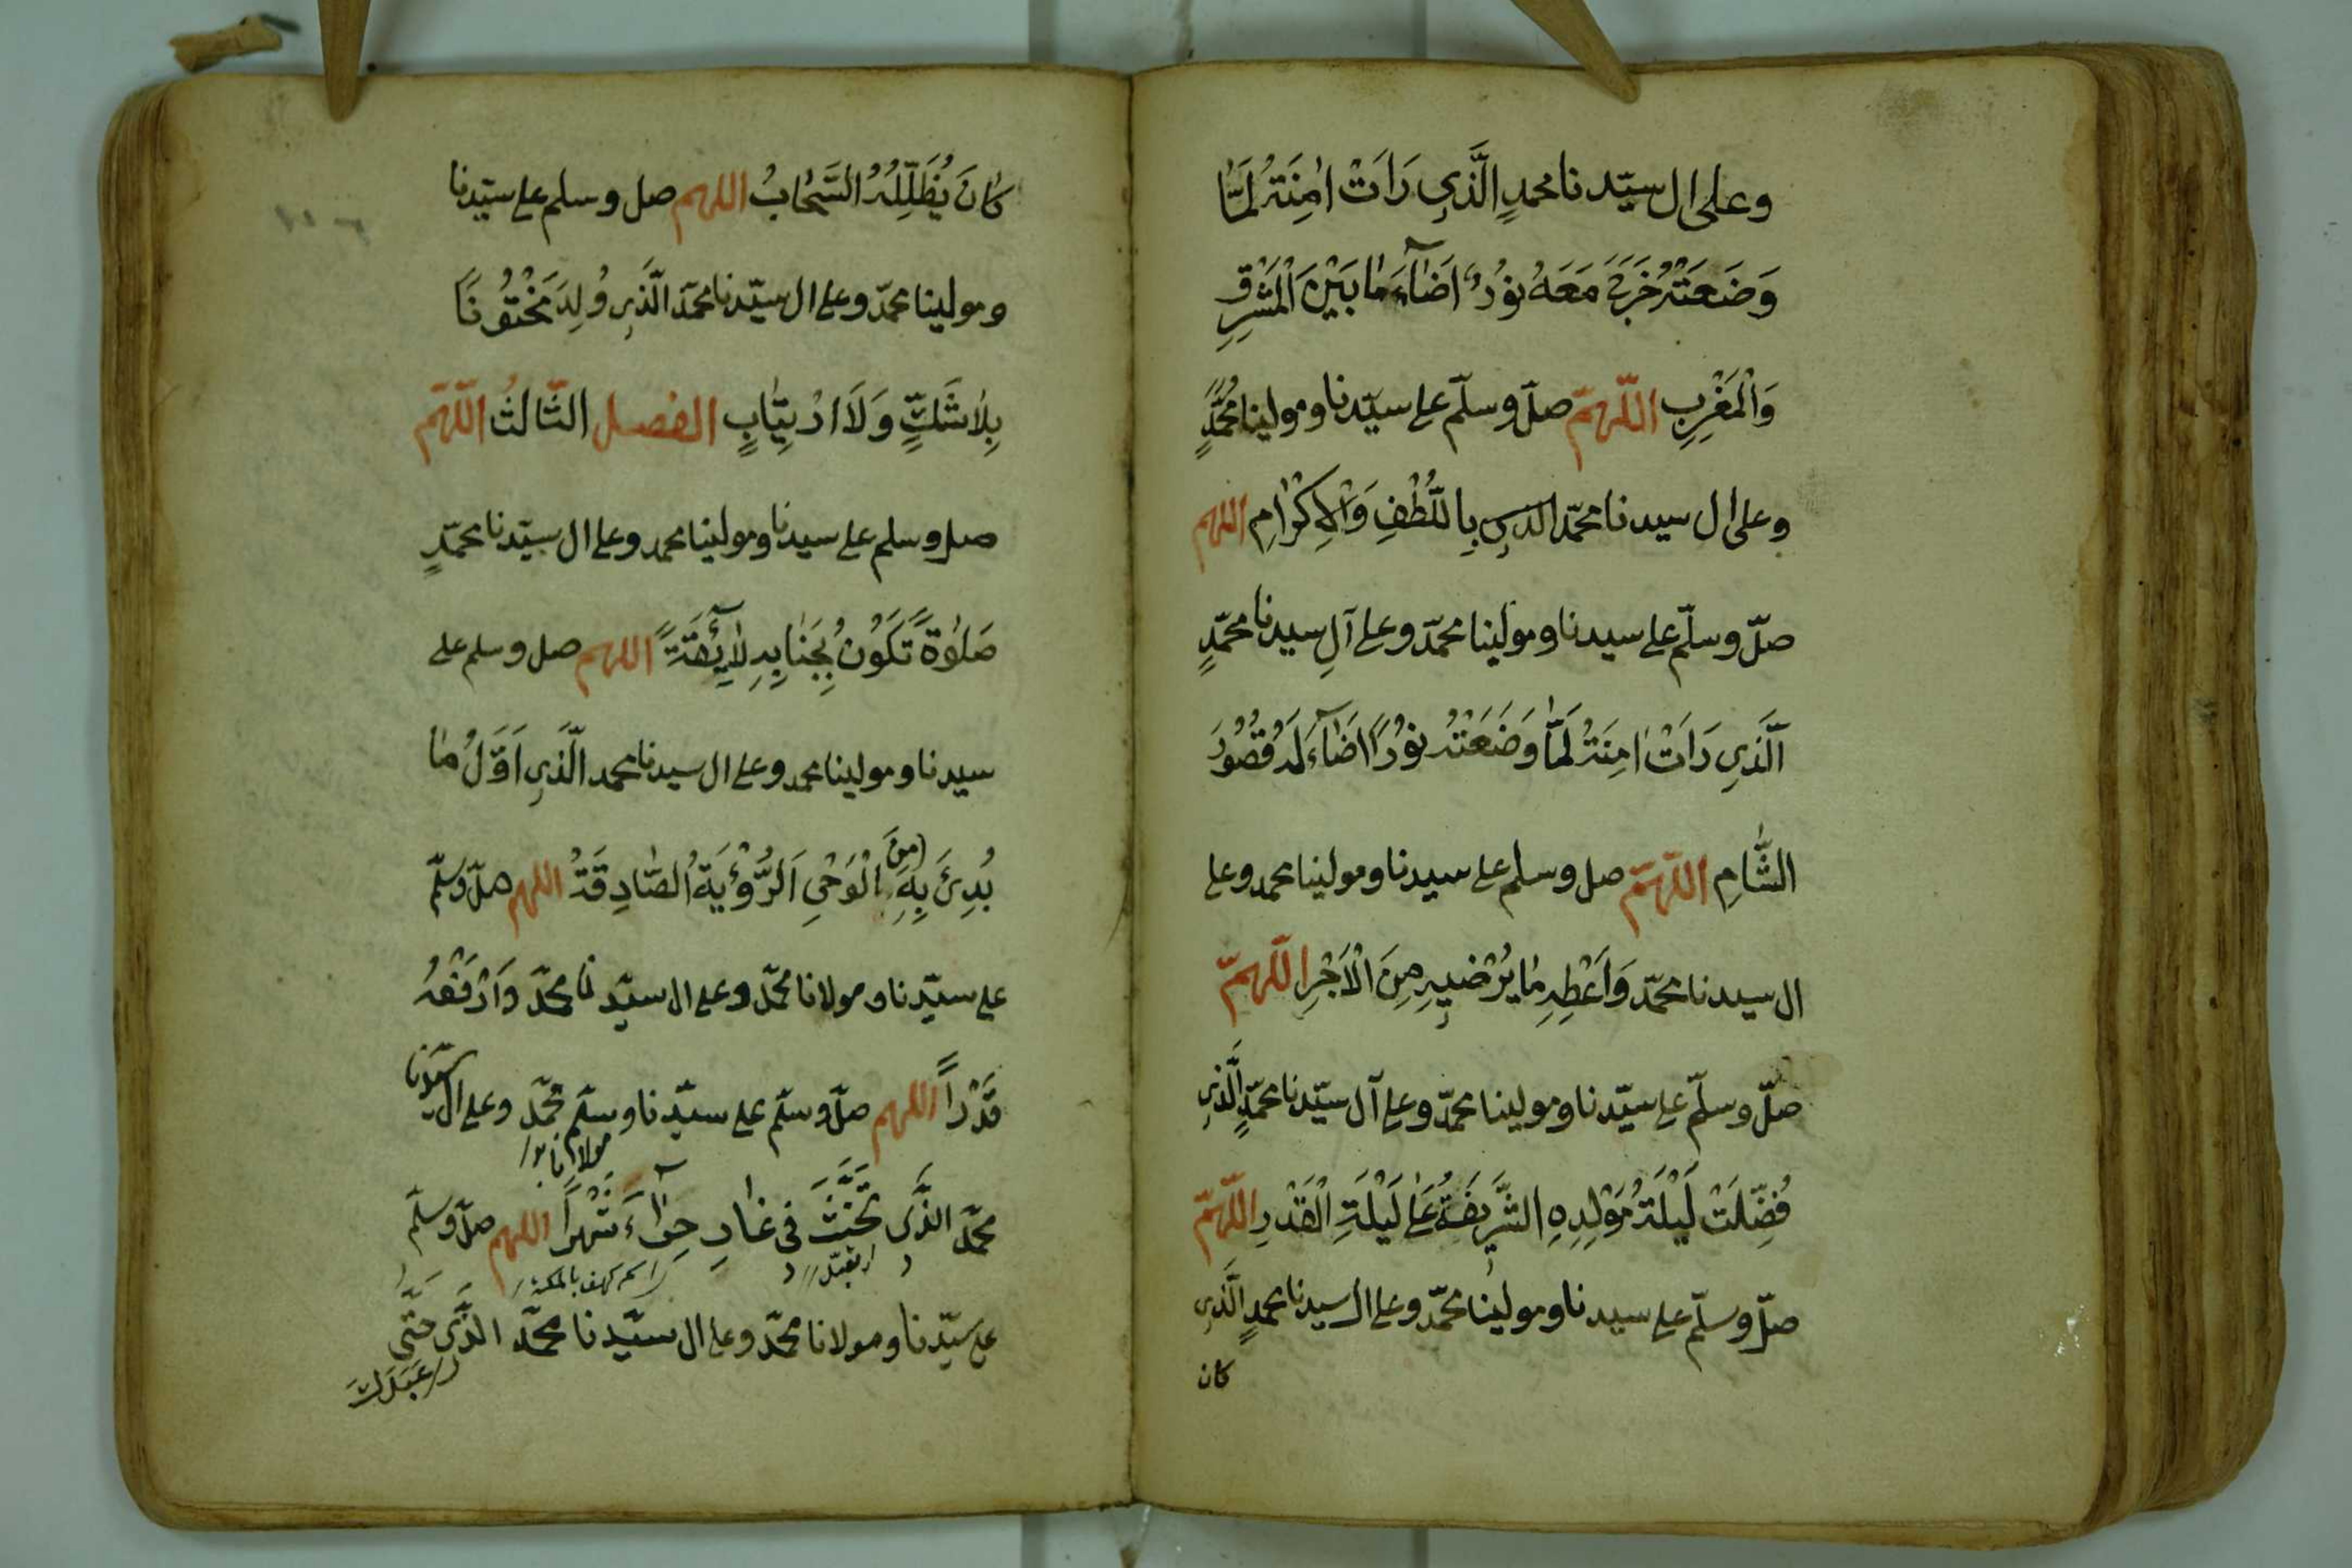 وعلى ال سيّدنا محمدٍ الَّذِي رَاَتْ اٰمِنَتُ لَمَّا
وَضَعَتْهُ خَرَجَ مَعَهُ نُوْرٌ اَضَاۤءَ مَا بَيْنَ الْمَشْرِقِ
وَالْمَغْرِبِ اللّهمّ صلّ وسلّم على سيّدنا ومولينا محمّدٍ
وعلى ال سيدنا محمّد الذي بِاللُّطْفِ وَالْاِكْرَامِ اللهم
صلّ وسلّم على سيدنا ومولينا محمّد وعلى آلِ سيدنا محمّدٍ
الَّذِي رَاَتْ اٰمِنَتُ لَمَّا وَضَعَتْهُ نُوْرًا اَضَاۤءَ لَهُ قُصُوْرُ
الشَّامِ اللّهمّ صل وسلم على سيدنا ومولينا محمد وعلى
ال سيدنا محمّد وَاَعْطِهِ مَا يُرْضِيهِ مِنَ الْاَجْرِ اللّهمّ
صلّ وسلّم على سيّدنا ومولينا محمّد وعلى آل سيّدنا محمّدٍ الَّذِي
فُضِّلَتْ لَيْلَةُ مَوْلِدِهِ الشَّرِيفَةُ عَلَى لَيْلَةِ الْقَدْرِ اللّهمّ
صلّ وسلّم على سيدنا ومولينا محمّد وعلى ال سيدنا محمدٍ الَّذِي
كان
كَانَ يُظَلِّلُهُ السَّحَابُ اللهم صل وسلم على سيّدنا
ومولينا محمّد وعلى ال سيّدنا محمّد الَّذِي وُلِدَ مَخْتُوْنًا
بِلَا شَكٍّ وَلَا ارْتِيَابٍ الفصل الثّالثُ اللّهمّ
صل وسلم على سيدنا ومولينا محمد وعلى ال سيّدنا محمّدٍ
صَلٰوةً تَكُوْنُ بِجَنَابِهِ لَاۤئِقَةً اللهم صل وسلم على
سيدنا ومولينا محمد وعلى ال سيدنا محمد الَّذِي اَوَّلُ مَا
بُدِئَ بِهِ مِنَ الْوَحْيِ اَلرُّؤْيَةُ الصَّادِقَةُ اللهم صلّ وسَلّم
على سيّدنا ومولانا محمّد وعلى ال سيّدنا محمّد وَارْفَعْهُ
قَدْرًا اللهم صلّ وسلّم على سيّدنا وسلّم محمّد وعلى ال سيّدنا
مولانا
محمّد الذّي تَحَنَّثَ فى غَارِ حِرَاۤءَ شَهْرًا اللهم صلّ وسَلّم
اسم كهف بالمكة
على سيّدنا ومولانا محمّد وعلى ال سيّدنا محمّد الذّي حَتَّى